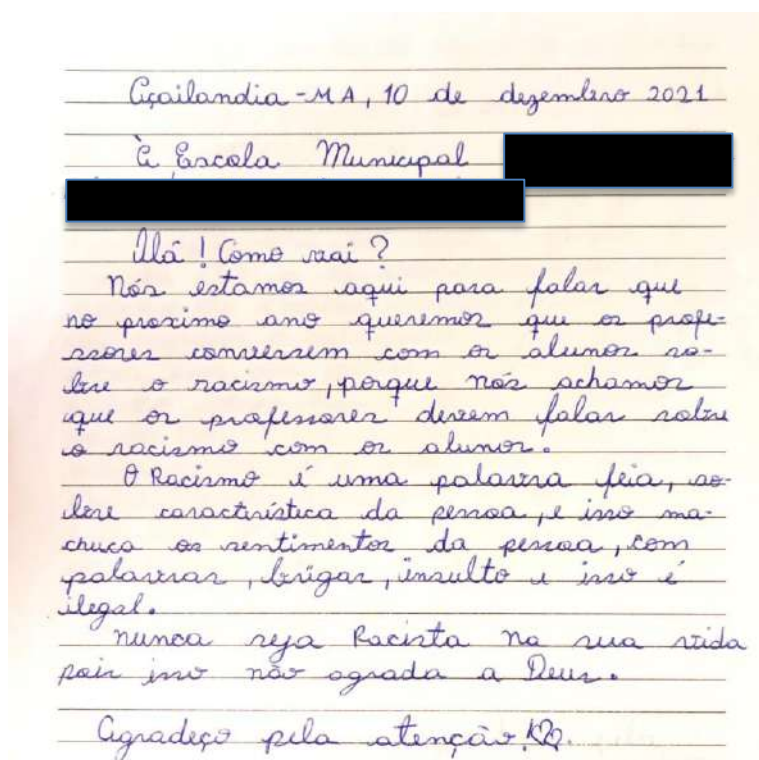 Açailandia-MA, 10 de dezembro 2021
À Escola Municipal
Olá! Como vai?
Nós estamos aqui para falar que
no proximo ano queremos que os profe-
ssores conversem com os alunos so-
bre o racismo, porque nós achamos
que os professores devem falar sobre
o racismo com os alunos.
O Racismo é uma palavra feia, so-
bre característica da pessoa, e isso ma-
chuca os sentimentos da pessoa, com
palavras, brigas, insulto e isso é
ilegal.
nunca seja Racista na sua vida
pois isso não agrada a Deus.
Agradeço pela atenção!